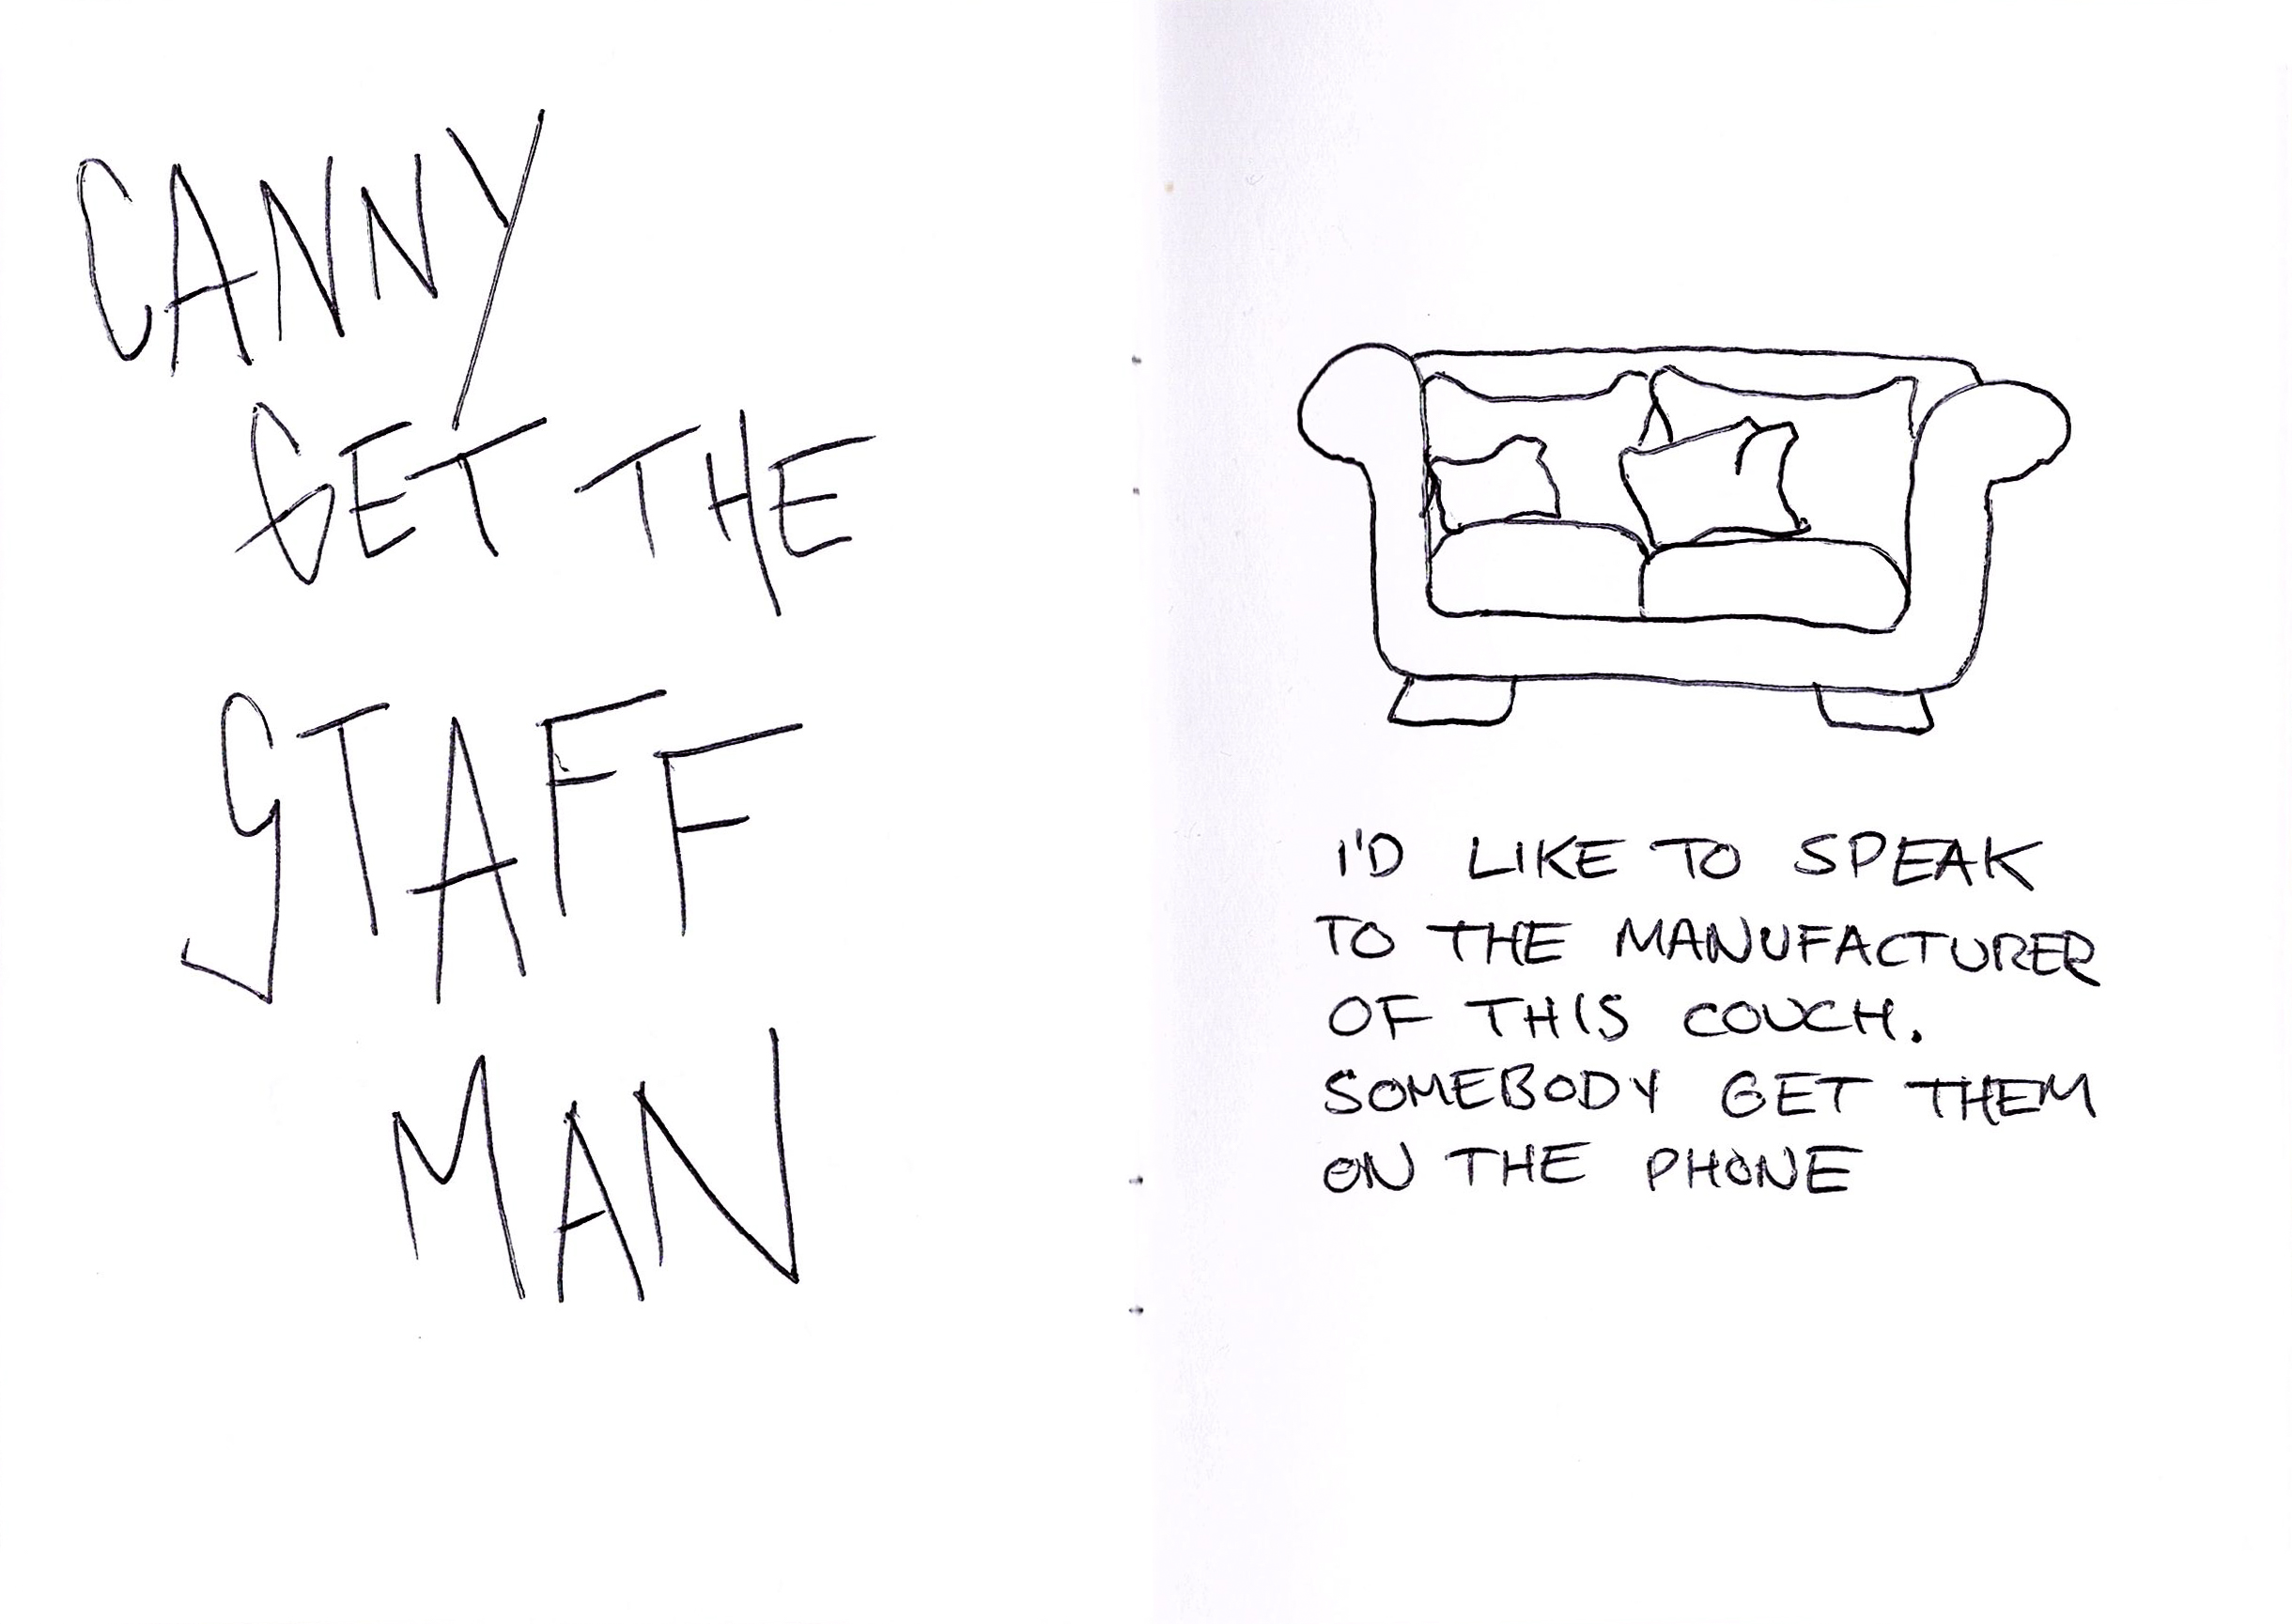 CANNY
GET THE
STAFF
MAN
I'D LIKE TO SPEAK
TO THE MANUFACTURER
OF THIS COUCH.
SOMEBODY GET THEM
ON THE PHONE